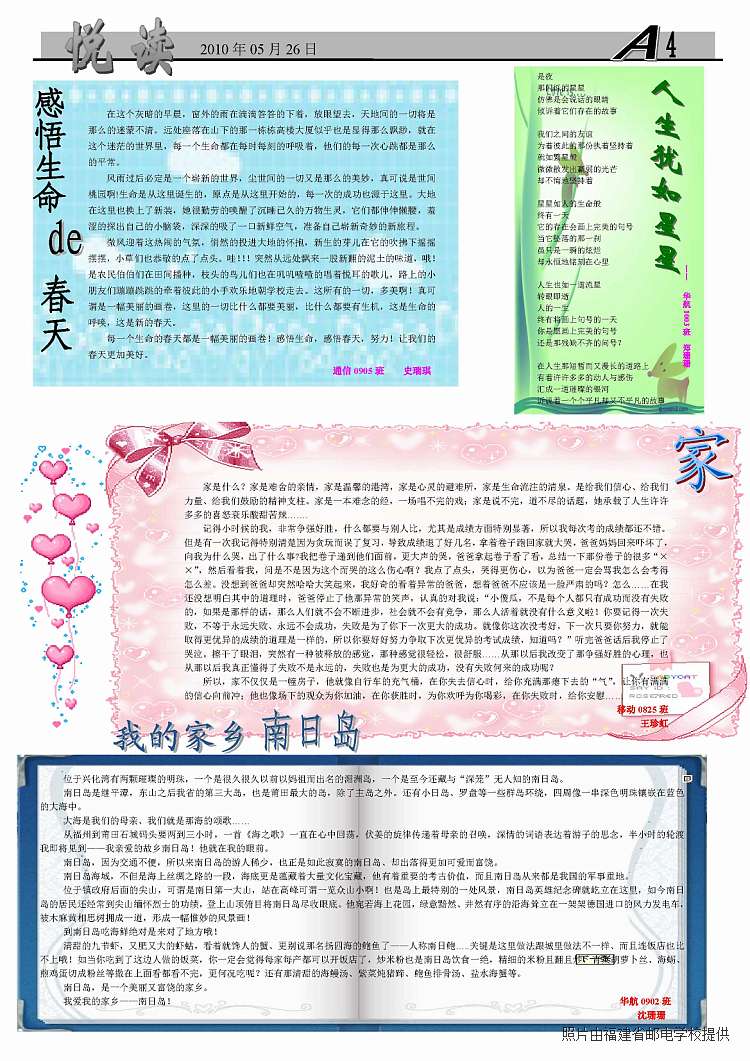 悦读
2010 年 05 月 26 日
A4
感悟生命de春天
在这个灰暗的早晨，窗外的雨在滴滴答答的下着，放眼望去，天地间的一切将是
那么的迷蒙不清。远处座落在山下的那一栋栋高楼大厦似乎也是显得那么飘渺，就在
这个迷茫的世界里，每一个生命都在每时每刻的呼吸着，他们的每一次心跳都是那么
的平常。
风雨过后必定是一个崭新的世界，尘世间的一切又是那么的美妙，真可说是世间
桃园啊!生命是从这里诞生的，原点是从这里开始的，每一次的成功也源于这里。大地
在这里也换上了新装，她很勤劳的唤醒了沉睡已久的万物生灵，它们都伸伸懒腰，羞
涩的探出自己的小脑袋，深深的吸了一口新鲜空气，准备自己崭新奇妙的新旅程。
微风迎着这热闹的气氛，悄然的投进大地的怀抱，新生的芽儿在它的吹拂下摇摇
摆摆，小草儿们也恭敬的点了点头。哇!!! 突然从远处飘来一股新翻的泥土的味道，哦!
是农民伯伯们在田间播种，枝头的鸟儿们也在叽叽喳喳的唱着悦耳的歌儿，路上的小
朋友们蹦蹦跳跳的牵着彼此的小手欢乐地朝学校走去。这所有的一切，多美啊！真可
谓是一幅美丽的画卷，这里的一切比什么都要美丽，比什么都要有生机，这是生命的
呼唤，这是新的春天。
每一个生命的春天都是一幅美丽的画卷！感悟生命，感悟春天，努力！让我们的
春天更加美好。
通信 0905 班 史瑞琪
人生犹如星星
——华航 1003 班 郑珊珊
是夜
那闪烁的星星
仿佛是会说话的眼睛
倾诉着它们存在的故事
我们之间的友谊
为着彼此的那份执着坚持着
宛如繁星般
微微散发出羸弱的光芒
却不悔地坚持着
星星如人的生命般
终有一天
它的存在会画上完美的句号
当它坠落的那一刹
虽只是一瞬的炫烂
却永恒地铭刻在心里
人生也如一道流星
转眼即逝
人的一生
终有将画上句号的一天
你是愿画上完美的句号
还是那残缺不齐的问号?
在人生那短暂而又漫长的道路上
有着许许多多的动人与感伤
汇成一道璀璨的银河
听说着一个个平凡却又不平凡的故事
家
家是什么？家是难舍的亲情，家是温馨的港湾，家是心灵的避难所，家是生命流注的清泉。是给我们信心、给我们
力量、给我们鼓励的精神支柱。家是一本难念的经，一场唱不完的戏；家是说不完，道不尽的话题，她承载了人生许许
多多的喜怒哀乐酸甜苦辣……
记得小时候的我，非常争强好胜，什么都要与别人比，尤其是成绩方面特别显著，所以我每次考的成绩都还不错。
但是有一次我记得特别清楚是因为贪玩而误了复习，导致成绩退了好几名，拿着卷子跑回家就大哭，爸爸妈妈回来吓坏了，
向我为什么哭，出了什么事?我把卷子递到他们面前，更大声的哭，爸爸拿起卷子看了看，总结一下那份卷子的很多“×
×”，然后看着我，问是不是因为这个而哭的这么伤心啊？我点了点头，哭得更伤心，以为爸爸一定会骂我怎么会考得
怎么差。没想到爸爸却突然哈哈大笑起来，我好奇的看着异常的爸爸，想着爸爸不应该是一脸严肃的吗？怎么……在我
还没想明白其中的道理时，爸爸停止了他那异常的笑声，认真的对我说：“小傻瓜，不是每个人都只有成功而没有失败
的，如果是那样的话，那么人们就不会不断进步，社会就不会有竞争，那么人活着就没有什么意义啦！你要记得一次失
败，不等于永远失败，永远不会成功，失败是为了你下一次更大的成功。就像你这次没考好，下一次只要你努力，就能
取得更优异的成绩的道理是一样的，所以你要好好努力争取下次更优异的考试成绩，知道吗？”听完爸爸话后我停止了
哭泣，擦干了眼泪，突然有一种被释放的感觉，那种感觉很轻松，很舒服……从那以后我改变了那争强好胜的心理，也
从那以后我真正懂得了失败不是永远的，失败也是为更大的成功，没有失败何来的成功呢？
所以，家不仅仅是一幢房子，他就像自行车的充气桶，在你失去信心时，给你充满那瘪下去的“气”，让你有满满
的信心向前冲；他也像场下的观众为你加油，在你获胜时，为你欢呼为你喝彩，在你失败时，给你安慰……
移动 0825 班
王珍虹
我的家乡 南日岛
位于兴化湾有两颗璀璨的明珠，一个是很久很久以前以妈祖而出名的湄洲岛，一个是至今还藏与“深笼”无人知的南日岛。
南日岛是继平潭，东山之后我省的第三大岛，也是莆田最大的岛，除了主岛之外，还有小日岛、罗盘等一些群岛环绕，四周像一串深色明珠镶嵌在蓝色
的大海中。
大海是我们的母亲、我们就是那海的颂歌……
从福州到莆田石城码头要两到三小时，一首《海之歌》一直在心中回荡，伏姜的旋律传递着母亲的召唤，深情的词语表达着游子的思念，半小时的轮渡
我即将见到——我亲爱的故乡南日岛！他就在我的眼前。
南日岛，因为交通不便，所以来南日岛的游人稀少，也正是如此寂寞的南日岛、却出落得更加可爱而富饶。
南日岛海域，不但是海上丝绸之路的一段，海底更是蕴藏着大量文化宝藏，他有着重要的考古价值，而且南日岛从来都是我国的军事重地。
位于镇政府后面的尖山，可谓是南日第一大山，站在高峰可谓一览众山小啊！也是岛上最特别的一处风景，南日岛英雄纪念碑就屹立在那里，如今南日
岛的居民还经常到尖山缅怀烈士的功绩，登上山顶俯目将南日岛尽收眼底。他宛若海上花园，绿意黯然、井然有序的沿海耸立在一架架德国进口的风力发电车，
被木麻黄相思树拥成一道，形成一幅惟妙的风景画！
到南日岛吃海鲜绝对是来对了地方哦！
清甜的九节虾，又肥又大的虾蛄，看着就馋人的蟹、更别说那名扬四海的鲍鱼了——人称南日鲍……关键是这里做法跟城里做法不一样、而且连饭店也比
不上哦！如当你吃到了这边人做的饭菜，你一定会觉得每家每户都可以开饭店了，炒米粉也是南日岛饮食一绝，精细的米粉且翻且
煎鸡蛋切成粉丝等撒在上面看都看不完，更何况吃呢？还有那清甜的海鳗汤、紫菜炖猪蹄、鲍鱼排骨汤、盐水海蟹等。
南日岛，是一个美丽又富饶的家乡。
我爱我的家乡——南日岛！
华航 0902 班
沈珊珊
照片由福建省邮电学校提供